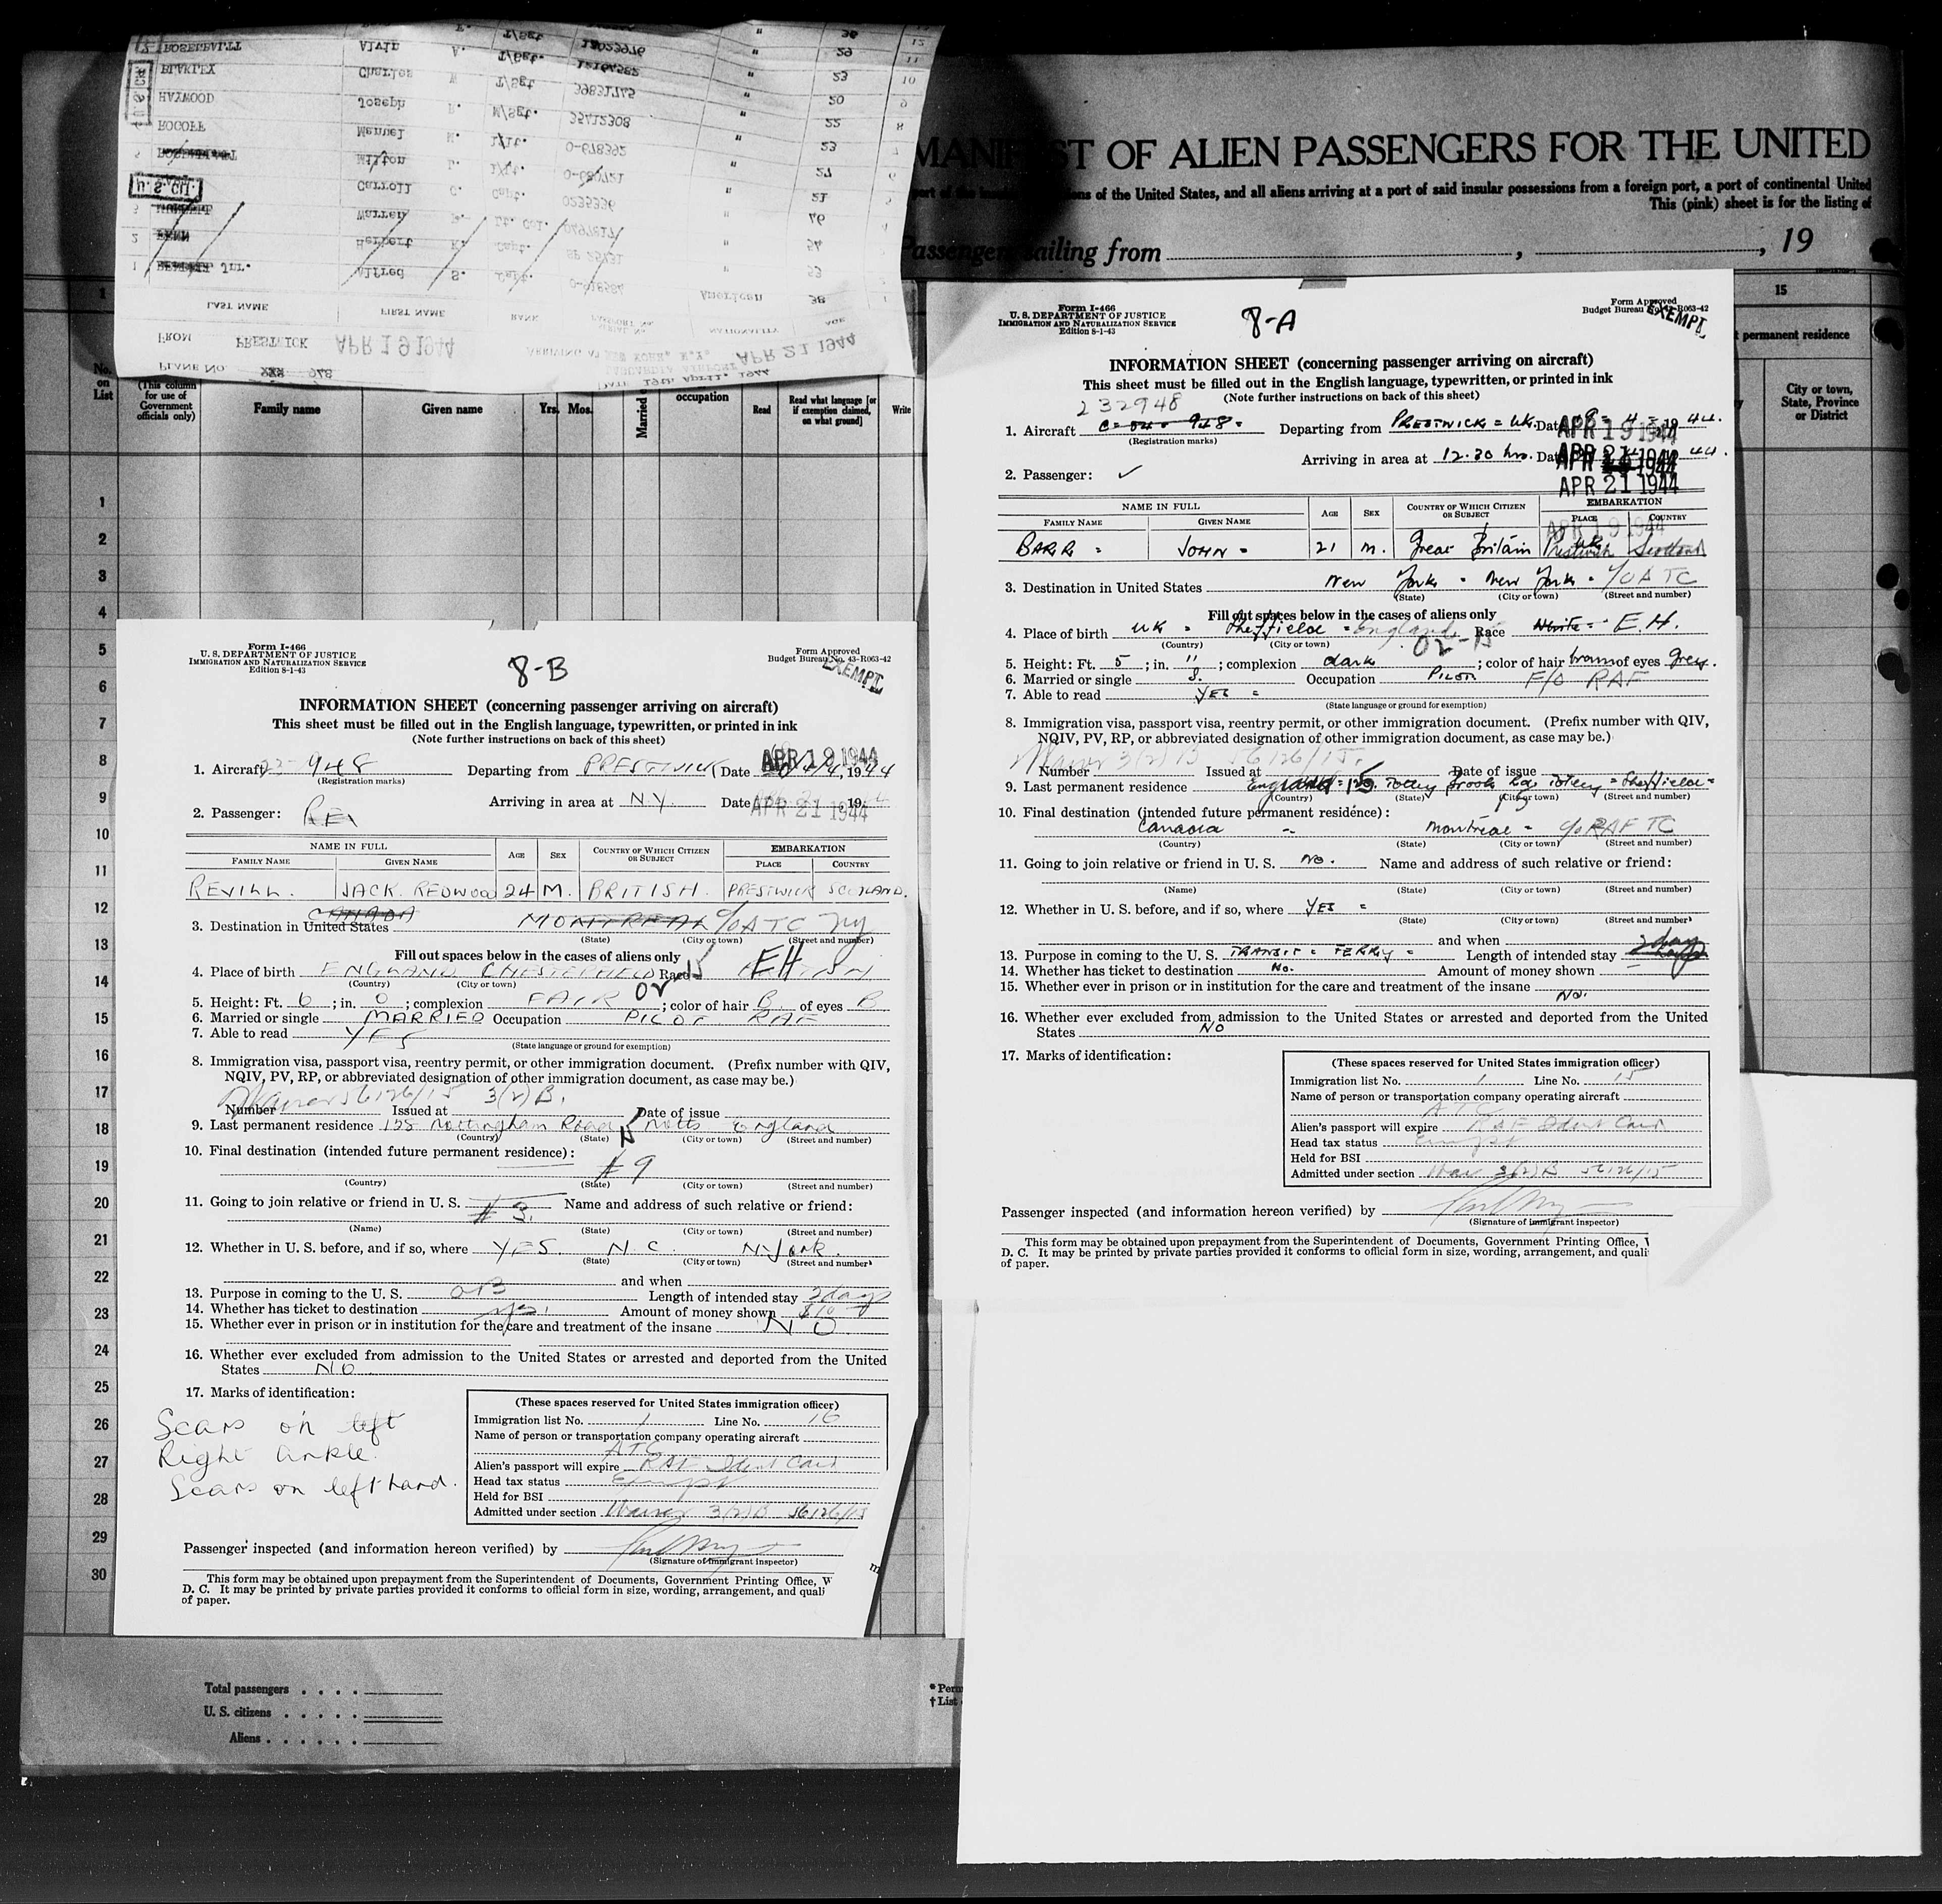 MANIFEST OF ALIEN PASSENGERS FOR THE UNITED
ions of the United States, and all aliens arriving at a port of said insular possessions from a foreign port, a port of continental United
This (pink) sheet is for the listing of
Passengers sailing from , , 19
15
permanent residence
City or town, State, Province or District
PLANE No. 948
DATE 19th April. 1944
FROM PRESTWICK APR 19 1944 ARRIVING AT NEW YORK, N.Y. APR 21 1944
LAGUARDIA AIRPORT
LAST NAME FIRST NAME RANK NATIONALITY AGE
1 Jnr. Alfred S. Capt. American 38
2 Herbert K. Capt. 54
Warren Lt. Col. 46
U.S. CIT.
Carroll C. Capt. 0235336 " 21
Milton 1/Lt. " 27
ROGOFF Manuel 1/Lt. 0-678392 " 23
HAYWOOD Joseph M/Sgt. 35412308 " 22
BLAKLEY Charles W T/Sgt 39831745 " 20
Alvin A. T/Sgt. " 23
No. on List
(This column for use of Government officials only)
Family name Given name Yrs. Mos. Married occupation Read Read what language [or if exemption claimed, on what ground] Write
1
2
3
4
5
6
7
8
9
10
11
12
13
14
15
16
17
18
19
20
21
22
23
24
25
26
27
28
29
30
Total passengers . . . .
U. S. citizens . . . . .
Aliens . . . . . .
Form I-466
U. S. DEPARTMENT OF JUSTICE
IMMIGRATION AND NATURALIZATION SERVICE
Edition 8-1-43
8-B
Form Approved
Budget Bureau No. 43-R063-42
EXEMPT
INFORMATION SHEET (concerning passenger arriving on aircraft)
This sheet must be filled out in the English language, typewritten, or printed in ink
(Note further instructions on back of this sheet)
1. Aircraft 948 Departing from PRESTWICK Date APR 19 1944 1944
(Registration marks)
Arriving in area at N.Y. Date APR 21 1944, 19
2. Passenger:
NAME IN FULL AGE SEX COUNTRY OF WHICH CITIZEN OR SUBJECT EMBARKATION
FAMILY NAME GIVEN NAME PLACE COUNTRY
REVILL. JACK. REDWOOD 24 M. BRITISH. PRESTWICK SCOTLAND.
CANADA
3. Destination in United States MONTREAL c/o ATC NY
(State) (City or town) (Street and number)
Fill out spaces below in the cases of aliens only
4. Place of birth ENGLAND CHESTERFIELD Race EH
(Country) (City or town)
5. Height: Ft. 6; in. 0; complexion FAIR; color of hair B. of eyes B
6. Married or single MARRIED Occupation PILOT RAF
7. Able to read YES
(State language or ground for exemption)
8. Immigration visa, passport visa, reentry permit, or other immigration document. (Prefix number with QIV, NQIV, PV, RP, or abbreviated designation of other immigration document, as case may be.)
Waiver 56126/15 3(2)B.
Number Issued at Date of issue
9. Last permanent residence 128 Nottingham Road Notts England
(Country) (State) (City or town) (Street and number)
10. Final destination (intended future permanent residence):
# 9
(Country) (State) (City or town) (Street and number)
11. Going to join relative or friend in U. S. # 3. Name and address of such relative or friend:
(Name) (State) (City or town) (Street and number)
12. Whether in U. S. before, and if so, where YES. N.C. N-York.
(State) (City or town) (Street and number)
and when
13. Purpose in coming to the U. S. OB Length of intended stay 2 days
14. Whether has ticket to destination yes. Amount of money shown $10
15. Whether ever in prison or in institution for the care and treatment of the insane NO
16. Whether ever excluded from admission to the United States or arrested and deported from the United States NO
17. Marks of identification:
Scars on left
Right ankle.
Scars on left hand.
(These spaces reserved for United States immigration officer)
Immigration list No. 1 Line No. 16
Name of person or transportation company operating aircraft
ATC
Alien's passport will expire RAF Ident Card
Head tax status Exempt
Held for BSI
Admitted under section Waiver 3(2)B 56126/15
Passenger inspected (and information hereon verified) by
(Signature of immigrant inspector)
This form may be obtained upon prepayment from the Superintendent of Documents, Government Printing Office, W
D. C. It may be printed by private parties provided it conforms to official form in size, wording, arrangement, and quali
of paper.
Form I-466
U. S. DEPARTMENT OF JUSTICE
IMMIGRATION AND NATURALIZATION SERVICE
Edition 8-1-43
8-A
Form Approved
Budget Bureau No. 43-R063-42
EXEMPT
INFORMATION SHEET (concerning passenger arriving on aircraft)
This sheet must be filled out in the English language, typewritten, or printed in ink
(Note further instructions on back of this sheet)
232948
1. Aircraft C-54- 948- Departing from PRESTWICK = UK. Date APR 19 1944 44.
(Registration marks)
Arriving in area at 12.30 hrs. Date APR 21 1944 44.
APR 21 1944
2. Passenger: ✓
NAME IN FULL AGE SEX COUNTRY OF WHICH CITIZEN OR SUBJECT EMBARKATION
FAMILY NAME GIVEN NAME PLACE COUNTRY
APR 19 1944
BARR = JOHN = 21 M. Great Britain Prestwick Scotland
3. Destination in United States New York = New York = c/o ATC
(State) (City or town) (Street and number)
Fill out spaces below in the cases of aliens only
4. Place of birth UK = Sheffield = England Race White = E.H.
(Country) (City or town)
5. Height: Ft. 5; in. 11; complexion dark; color of hair brown of eyes Grey.
6. Married or single S. Occupation PILOT F/O RAF
7. Able to read YES =
(State language or ground for exemption)
8. Immigration visa, passport visa, reentry permit, or other immigration document. (Prefix number with QIV, NQIV, PV, RP, or abbreviated designation of other immigration document, as case may be.)
Waiver 3(2)B 56126/15.
Number Issued at Date of issue
9. Last permanent residence England Totley Brook Rd. Totley = Sheffield =
(Country) (State) (City or town) (Street and number)
10. Final destination (intended future permanent residence):
Canada Montreal = c/o RAF TC
(Country) (State) (City or town) (Street and number)
11. Going to join relative or friend in U. S. No. Name and address of such relative or friend:
(Name) (State) (City or town) (Street and number)
12. Whether in U. S. before, and if so, where YES =
(State) (City or town) (Street and number)
and when
13. Purpose in coming to the U. S. TRANSIT = FERRY = Length of intended stay 2 days
14. Whether has ticket to destination No. Amount of money shown —
15. Whether ever in prison or in institution for the care and treatment of the insane
No.
16. Whether ever excluded from admission to the United States or arrested and deported from the United States NO
17. Marks of identification:
(These spaces reserved for United States immigration officer)
Immigration list No. 1 Line No. 15
Name of person or transportation company operating aircraft
ATC
Alien's passport will expire RAF Ident Card
Head tax status Exempt
Held for BSI
Admitted under section Waiv 3(2)B 56126/15
Passenger inspected (and information hereon verified) by
(Signature of immigrant inspector)
This form may be obtained upon prepayment from the Superintendent of Documents, Government Printing Office, W
D. C. It may be printed by private parties provided it conforms to official form in size, wording, arrangement, and quali
of paper.